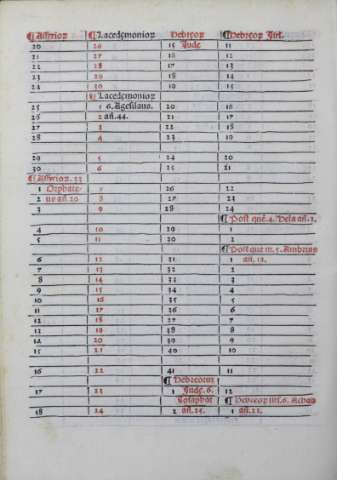 ¶ Assirioȝ ¶ Lacedemonioȝ Hebreoȝ ¶ Hebreoȝ Isrl.
20 26 15 Jude 11
21 27 16 12
22 28 17 13
23 29 18 14
24 30 19 15
¶ Lacedemonioȝ
25 1 6. Agesilaus. 20 16
26 2 añ. 44. 21 17
27 3 22 18
28 4 23 19
29 5 24 20
30 6 25 21
¶ Assirioȝ. 33
1 Orphate- 7 26 22
2 us añ 20 8 27 23
3 9 28 24
¶ Post quē. 4. Hela añ. 2.
4 10 29 1
5 11 30 2
¶ Post que m. 5. Ambriȝ
6 12 31 1 añ. 12.
7 13 32 2
8 14 33 3
9 15 34 4
10 16 35 5
11 17 36 6
12 18 37 7
13 19 38 8
14 20 39 9
15 21 40 10
16 22 41 11
¶ Hebreorum
17 23 1 Jude. 6. 12
Josaphat ¶ Hebreoȝ isrl. 6. Achab
18 24 2 añ. 25. 1 añ. 22.